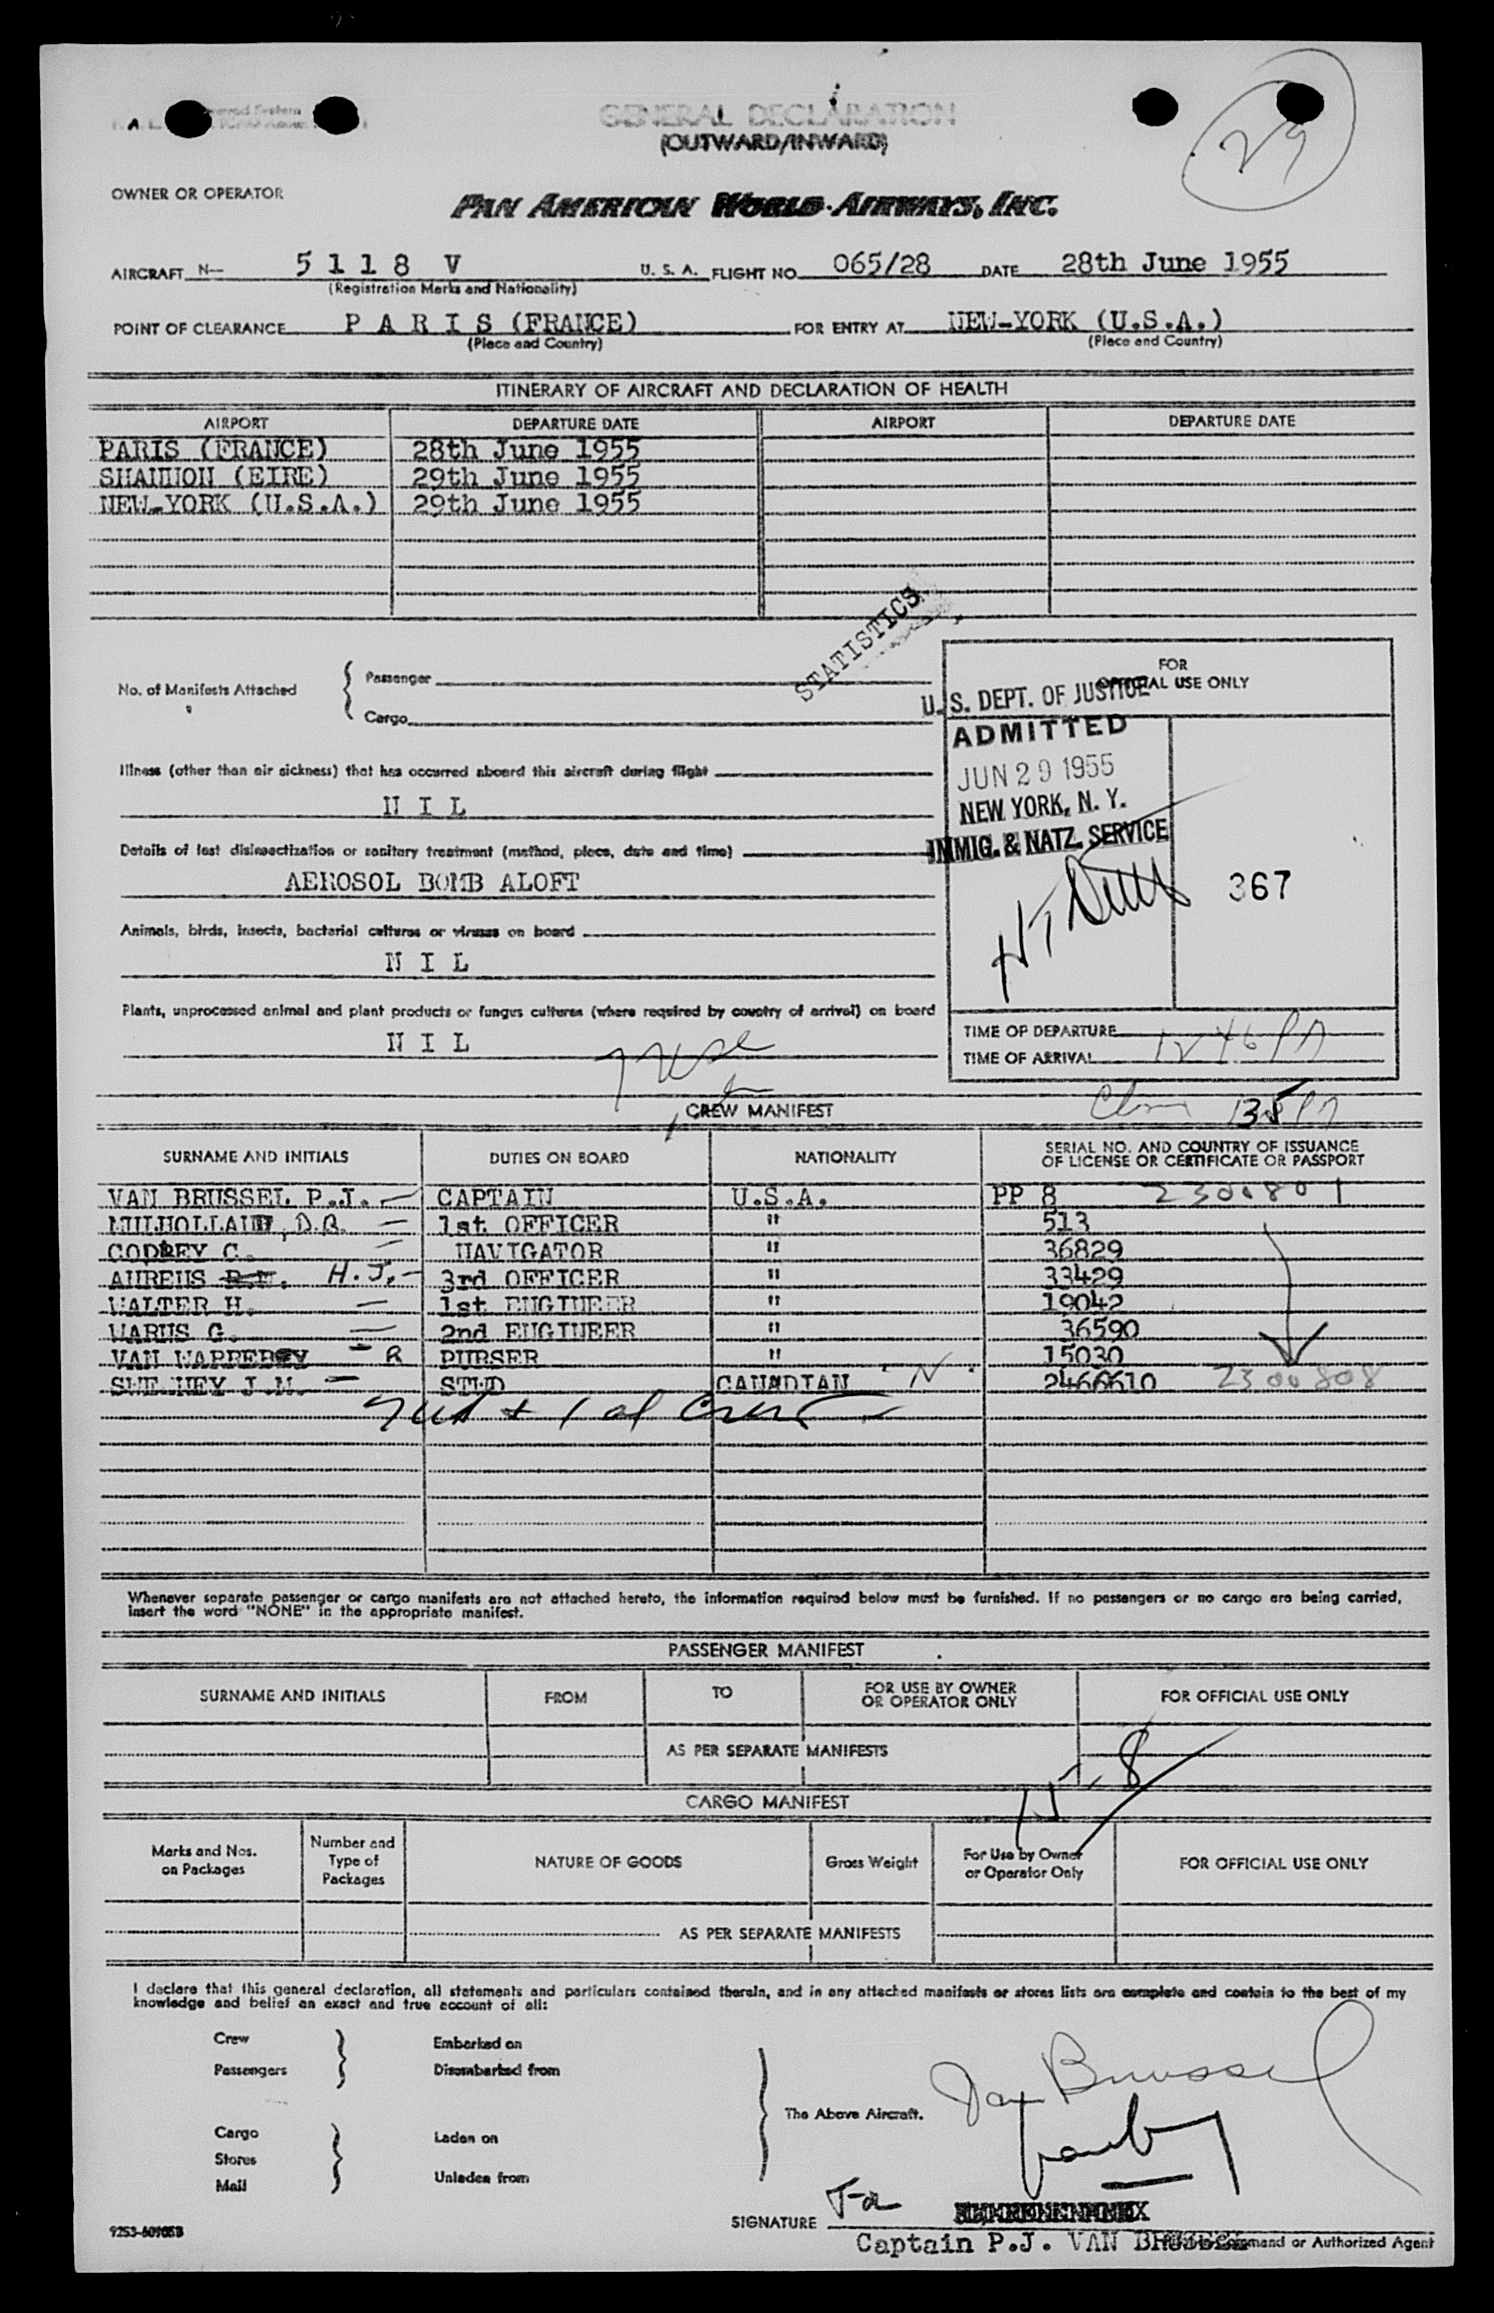 29
GENERAL DECLARATION
(OUTWARD/INWARD)
OWNER OR OPERATOR
PAN AMERICAN WORLD AIRWAYS, INC.
AIRCRAFT N— 5118 V U. S. A. FLIGHT NO. 065/28 DATE 28th June 1955
(Registration Marks and Nationality)
POINT OF CLEARANCE PARIS (FRANCE) FOR ENTRY AT NEW-YORK (U.S.A.)
(Place and Country) (Place and Country)
ITINERARY OF AIRCRAFT AND DECLARATION OF HEALTH
AIRPORT DEPARTURE DATE AIRPORT DEPARTURE DATE
PARIS (FRANCE) 28th June 1955
SHANNON (EIRE) 29th June 1955
NEW-YORK (U.S.A.) 29th June 1955
STATISTICS
No. of Manifests Attached { Passenger
Cargo
FOR
OFFICIAL USE ONLY
U. S. DEPT. OF JUSTICE
ADMITTED
JUN 29 1955
NEW YORK, N. Y.
IMMIG. & NATZ. SERVICE
367
Illness (other than air sickness) that has occurred aboard this aircraft during flight
NIL
Details of last disinsectization or sanitary treatment (method, place, date and time)
AEROSOL BOMB ALOFT
Animals, birds, insects, bacterial cultures or viruses on board
NIL
Plants, unprocessed animal and plant products or fungus cultures (where required by country of arrival) on board
NIL
TIME OF DEPARTURE
TIME OF ARRIVAL 1246 PM
CREW MANIFEST
SURNAME AND INITIALS DUTIES ON BOARD NATIONALITY SERIAL NO. AND COUNTRY OF ISSUANCE OF LICENSE OR CERTIFICATE OR PASSPORT
VAN BRUSSEL P.J. CAPTAIN U.S.A. PP 8 2300801
MULHOLLAND, D.B. 1st OFFICER " 513
GODREY C. NAVIGATOR " 36829
AHRENS H.J. 3rd OFFICER " 33429
WALTER H. 1st ENGINEER " 19042
WARNS G. 2nd ENGINEER " 36590
VAN R PURSER " 15030
J.M. STWD CANADIAN N 2466610 2300808
Whenever separate passenger or cargo manifests are not attached hereto, the information required below must be furnished. If no passengers or no cargo are being carried,
insert the word "NONE" in the appropriate manifest.
PASSENGER MANIFEST
SURNAME AND INITIALS FROM TO FOR USE BY OWNER OR OPERATOR ONLY FOR OFFICIAL USE ONLY
AS PER SEPARATE MANIFESTS
CARGO MANIFEST
Marks and Nos. on Packages Number and Type of Packages NATURE OF GOODS Gross Weight For Use by Owner or Operator Only FOR OFFICIAL USE ONLY
AS PER SEPARATE MANIFESTS
I declare that this general declaration, all statements and particulars contained therein, and in any attached manifests or stores lists are complete and contain to the best of my
knowledge and belief an exact and true account of all:
Crew Embarked on
Passengers Disembarked from
The Above Aircraft.
Cargo Laden on
Stores
Mail Unladen from
SIGNATURE
Captain P.J. VAN BRUSSEL Command or Authorized Agent